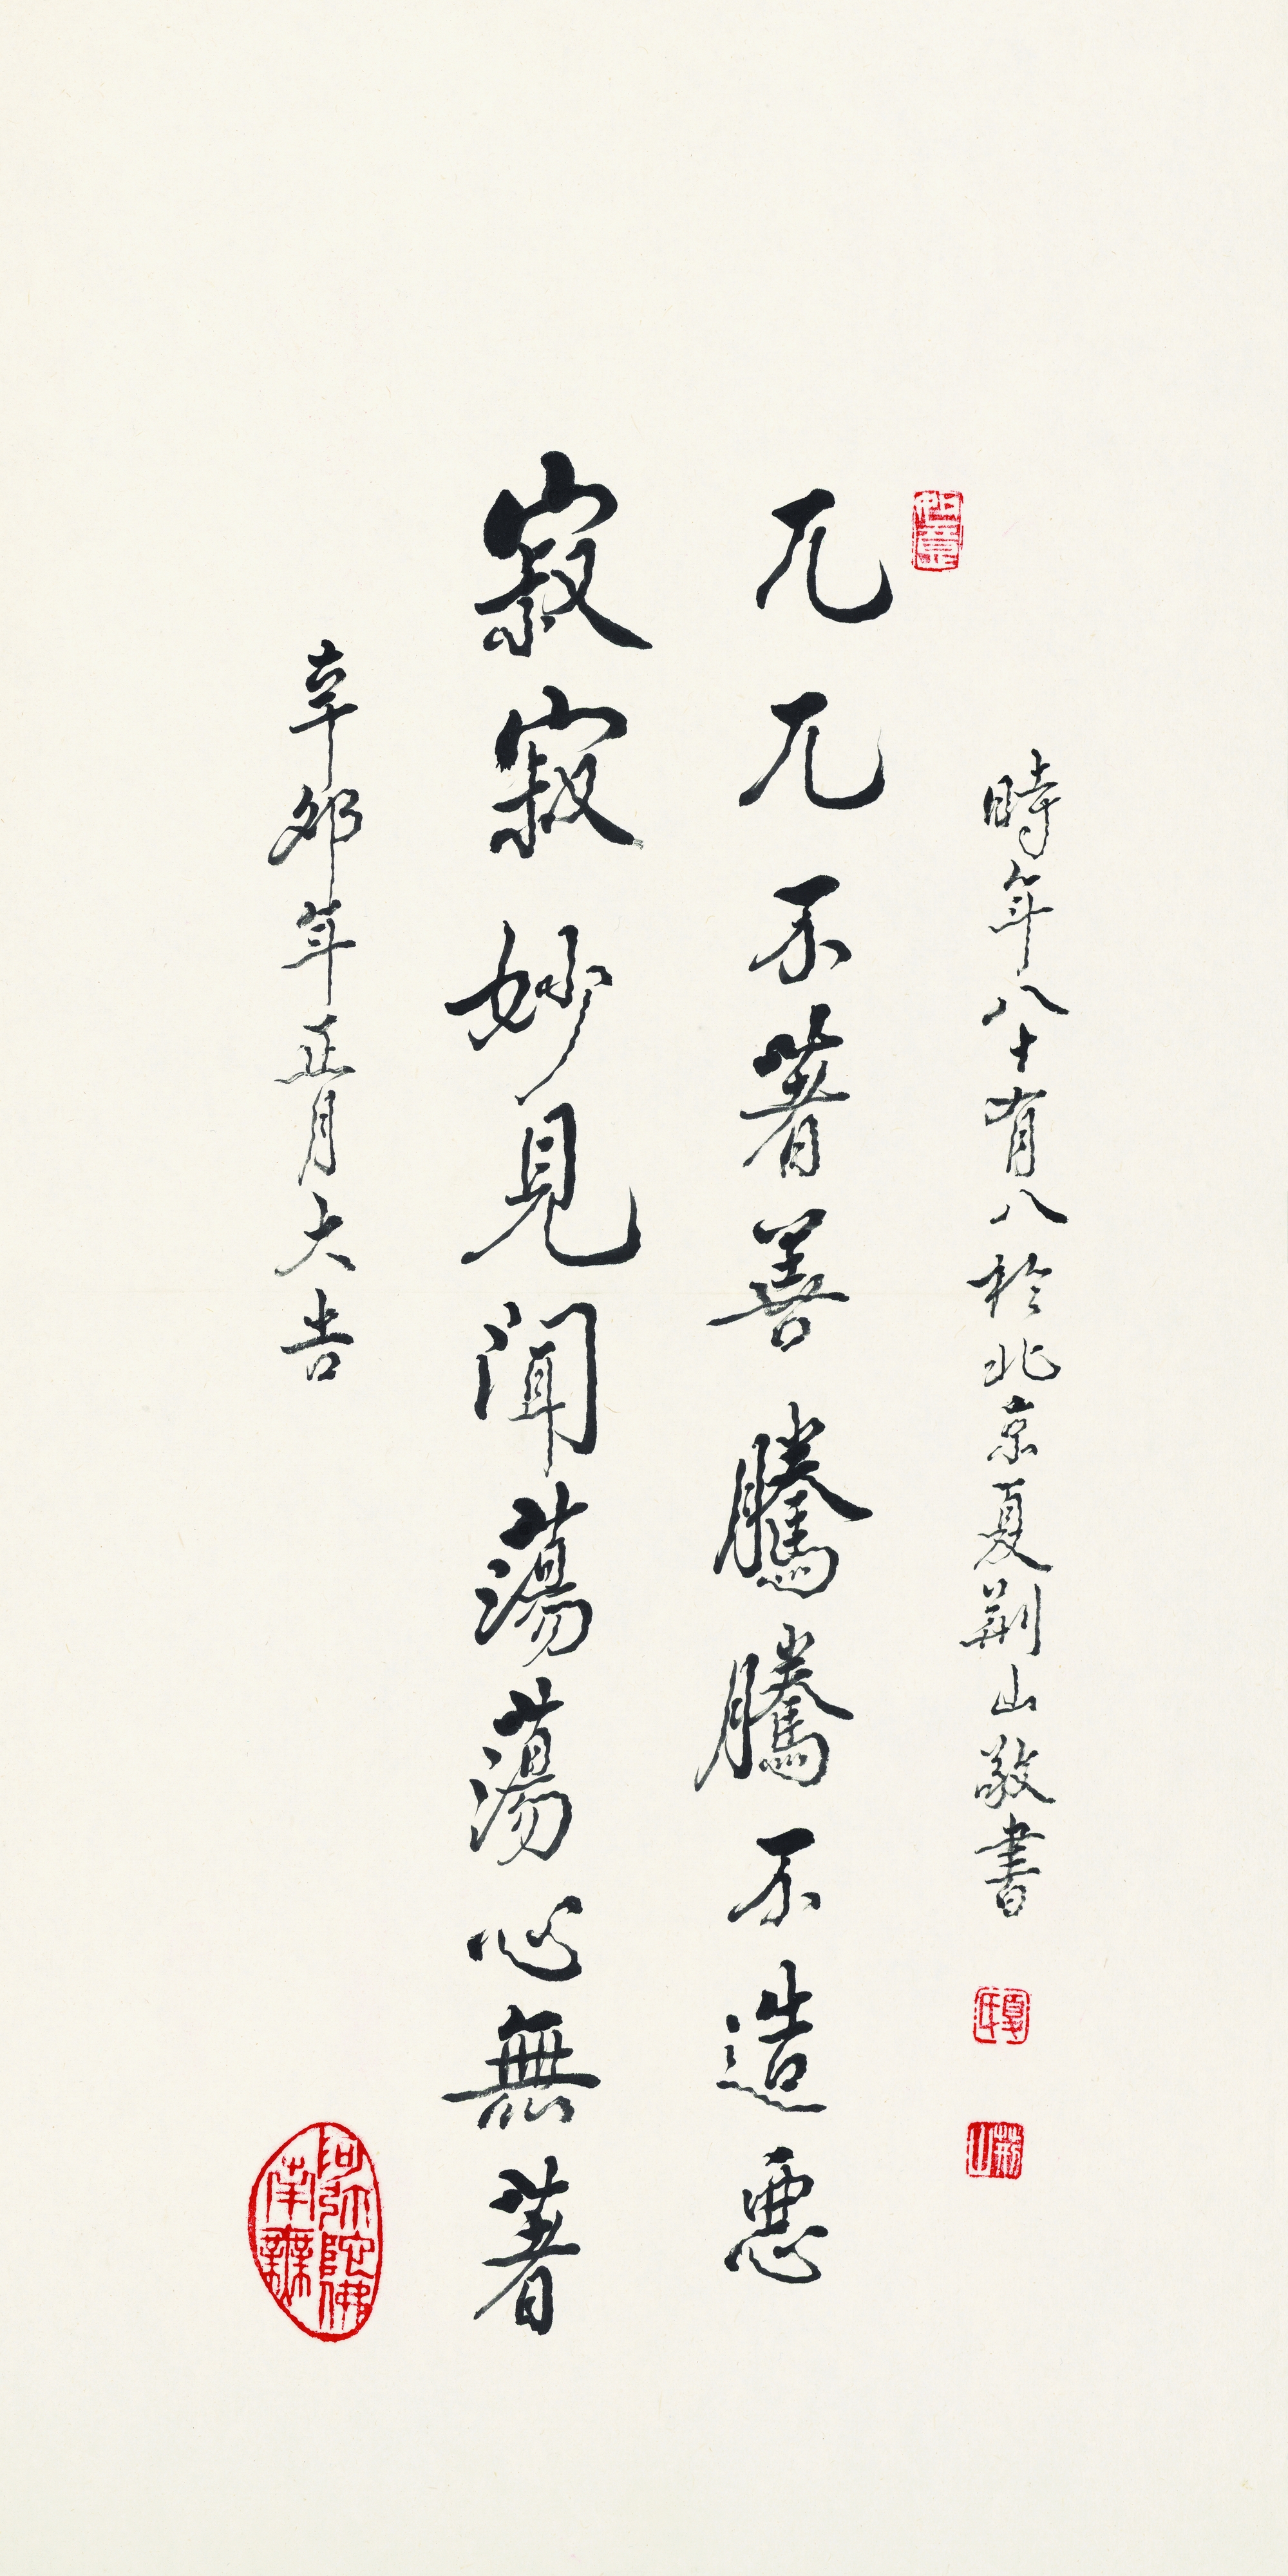 時年八十有八於北京夏荆山敬書
夏氏
荆山
如意
兀兀不著善騰騰不造惡
寂寂妙見聞蕩蕩心無著
辛卯年正月大吉
南無阿弥陀佛